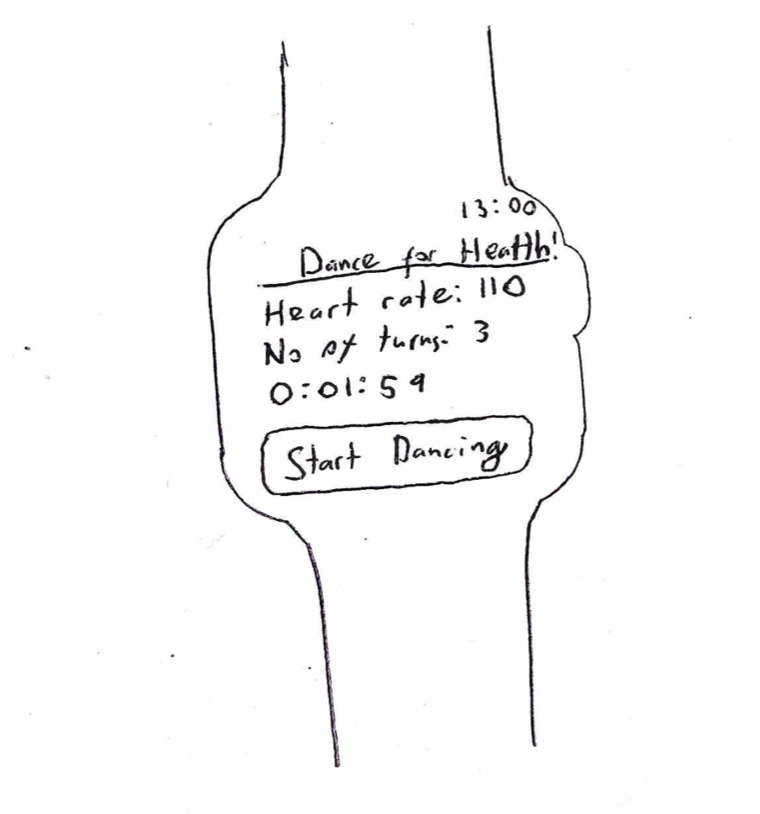 13:00
Dance for Health!
Heart rate: 110
No of turns: 3
0:01:59
Start Dancing